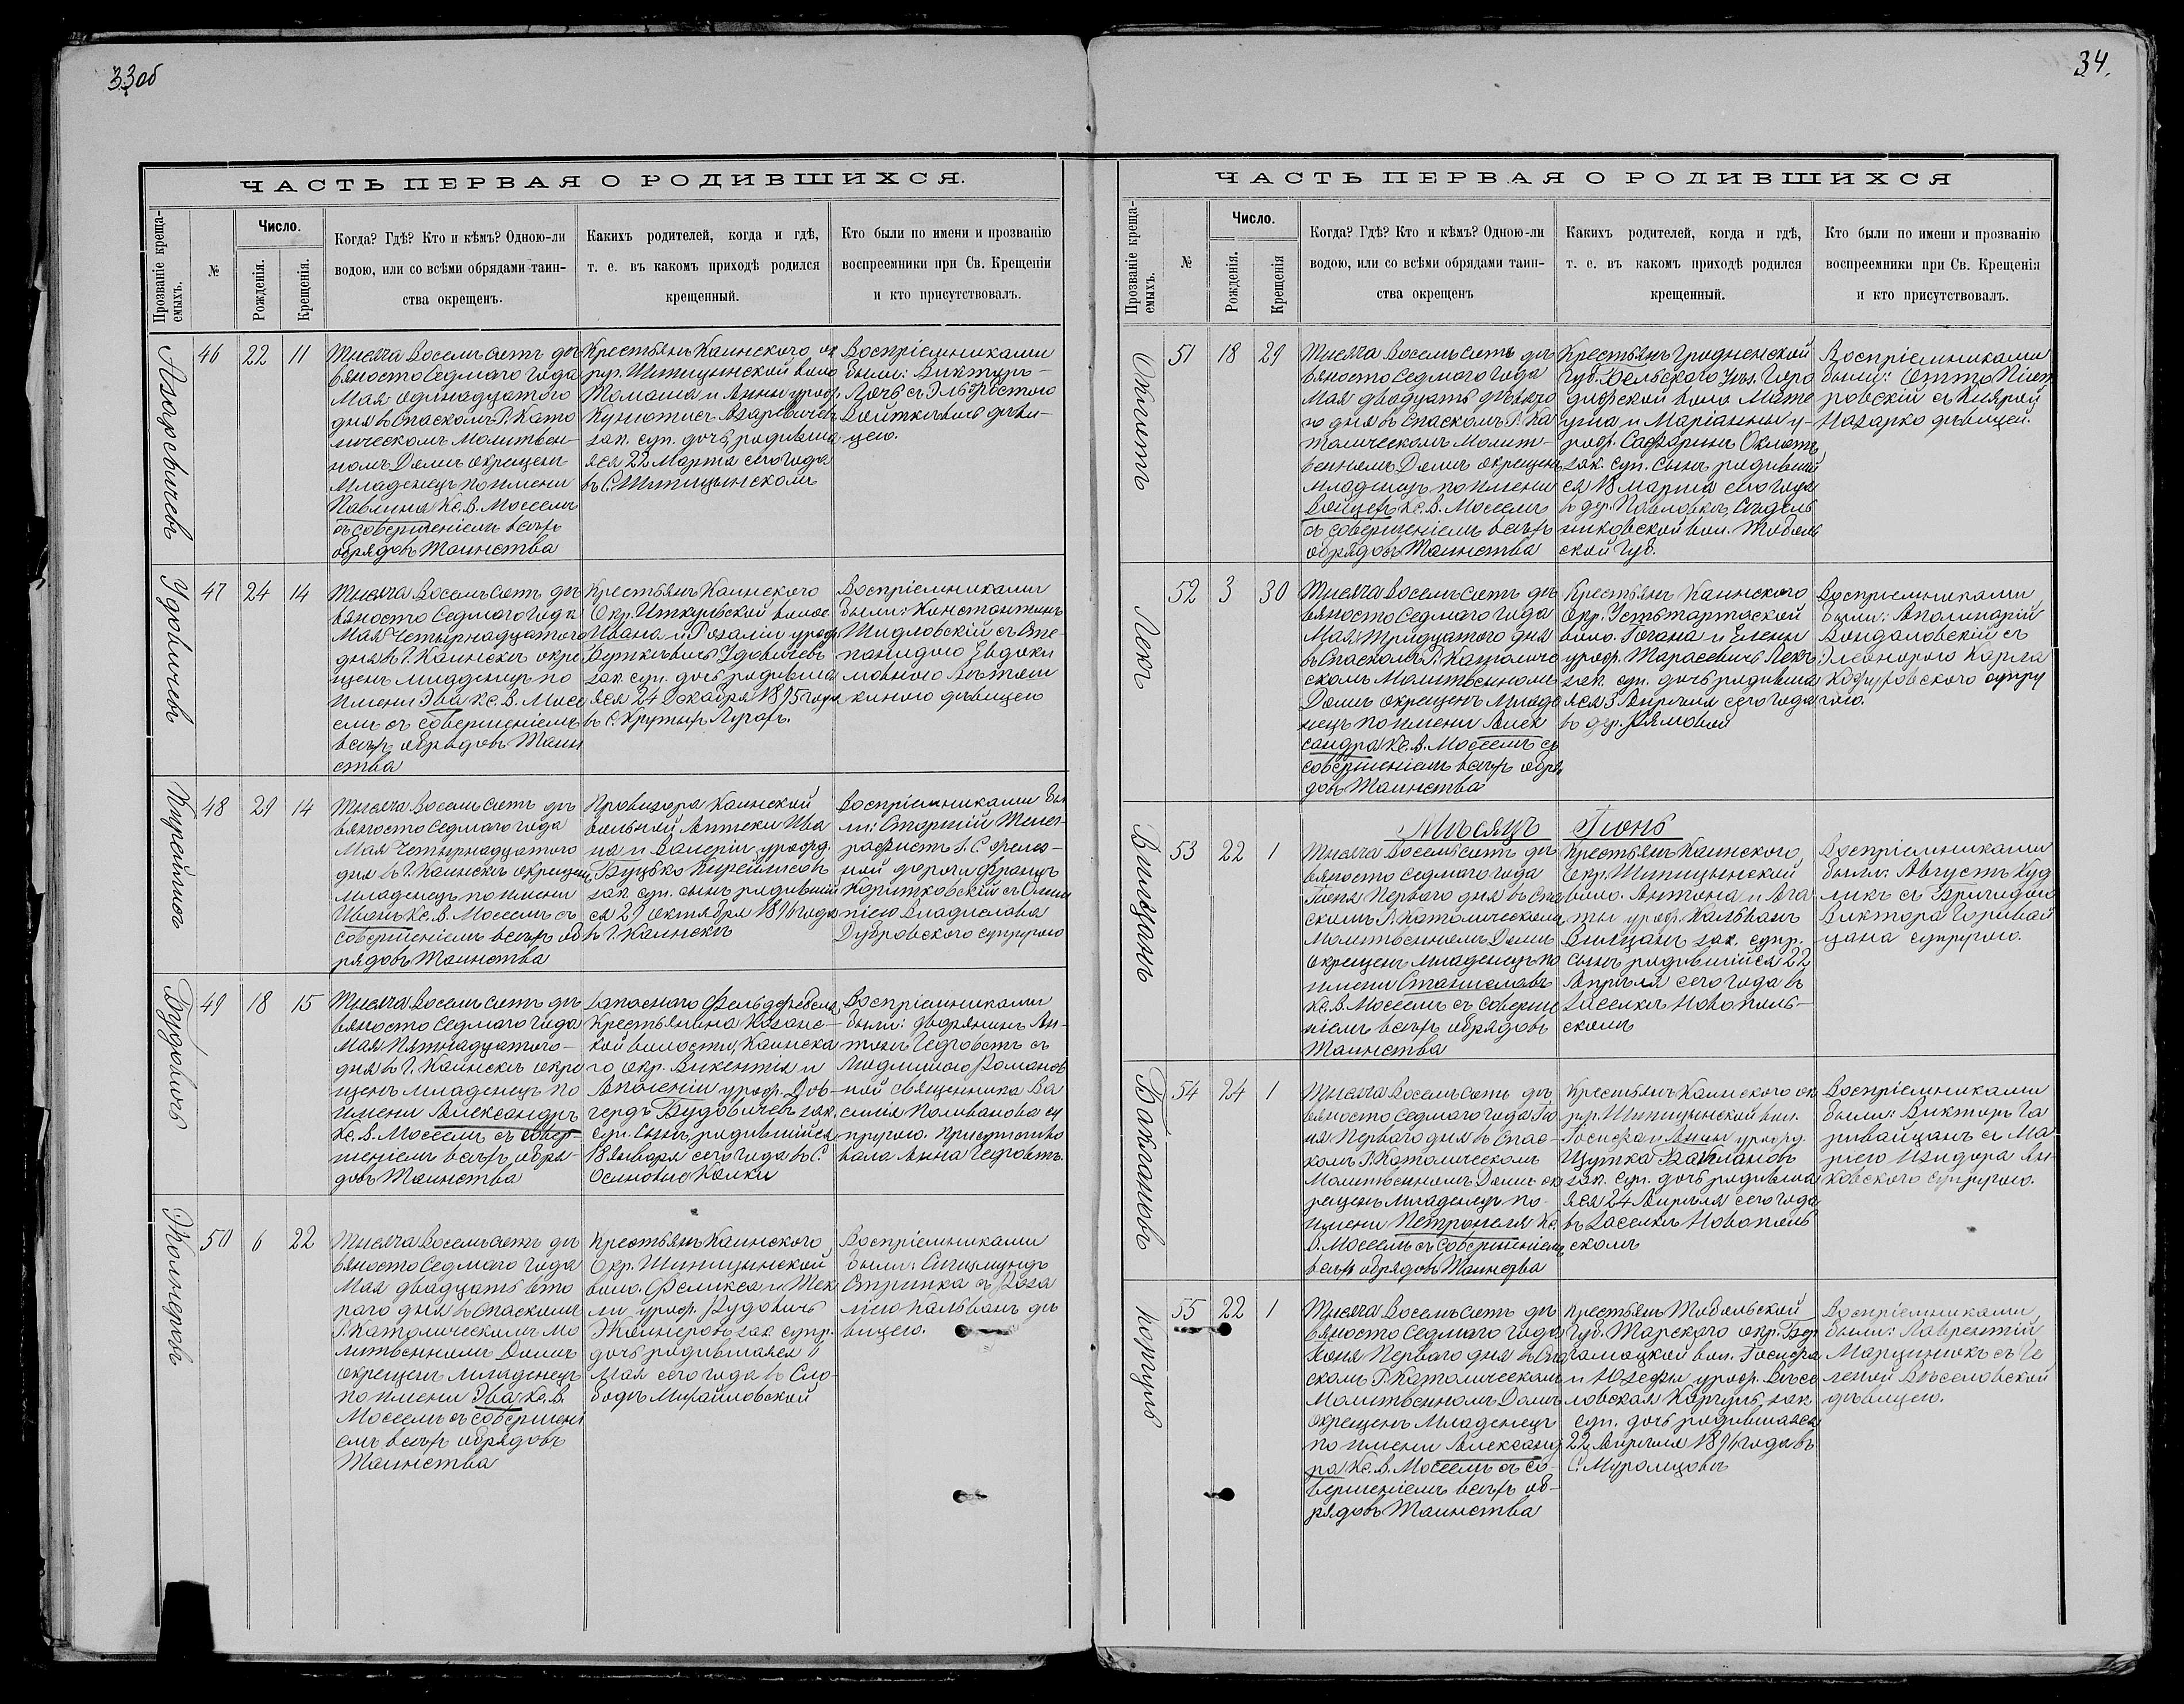 33об
ЧАСТЬ ПЕРВАЯ О РОДИВШИХСЯ.
Прозваніе креща-
емыхъ.
№
Число.
Рожденія.
Крещенія.
Когда? Гдѣ? Кто и кѣмъ? Одною-ли
водою, или со всѣми обрядами таин-
ства окрещенъ.
Какихъ родителей, когда и гдѣ,
т. е. въ какомъ приходѣ родился
крещенный.
Кто были по имени и прозванію
воспреемники при Св. Крещеніи
и кто присутствовалъ.
Азаревичевъ
46 22 11
Тысяча Восемьсотъ де
вяносто Седмаго Года
Мая одинадцатого
дня въ Спаскомъ Р. Като
лическомъ Молитвен-
номъ Домѣ окрещенъ
Младенецъ по имени
Павлина Кс. В. Моссемъ
съ совершеніемъ всѣхъ
обрядовъ Таинства
Крестьянъ Каинского ок
руг. Шипицынской воло
Томаша и Анны уроф.
Азаревичев
зак. суп. дочь, родивша
яся 22 Марта сего года
въ С. Шипицынскомъ
Воспріемниками
были: Викторъ
Войткевичъ дѣви-
цею.
Удовичевъ
47 24 14
Тысяча Восемьсотъ де
вяносто Седмаго Года
Мая Четырнадцатого
дня въ Г. Каинскѣ окре
щенъ младенецъ по
имени Эва Кс. В. Мосс
емъ съ совершеніемъ
всѣхъ обрядовъ Таин
ства
Крестьянъ Каинского
Окр. Иткульской волос.
Ивана и Розаліи уроф.
Буткевичъ Удовичевъ
зак. суп. дочь родивша
яся 24 Декабря 1895 года
въ С. Крутыхъ Лугахъ.
Воспріемниками
были: Константинъ
Шидловскій съ Сте
панидою Евдоки
мовною
киною дѣвицею
Кирейлисъ
48 29 14
Тысяча Восемьсотъ де
вяносто Седмаго года
Мая Четырнадцатого
дня въ Г. Каинскѣ окрещенъ
Младенецъ по имени
Иванъ Кс. В. Моссемъ съ
совершеніемъ всѣхъ об
рядовъ Таинства
Провизора Каинской
вольной Аптеки Ива
на и Валеріи урофд.
Буцько Кирейлисовъ
зак. суп. сынъ родившій
ся 29 октября 1896 года
въ Г. Каинскѣ
Воспріемниками бы
ли: Старшій Телег-
рафистъ З. С. Желез-
ной дороги Францъ
Корытковскій съ Олим
піею Владислава
Дубровского супругою
Будовичъ
49 18 15
Тысяча Восемьсотъ де
вяносто Седмаго года
Мая Пятнадцатого
дня въ Г. Каинскѣ окре
щенъ младенецъ по
имени Александръ
Кс. В. Моссемъ съ совер-
шеніемъ всѣхъ обря-
довъ Таинства
Запасного Фельдфебеля
Крестьянина Казанс-
кой волости, Каинска
го окр. Викентія и
Аполеніи уроф. Дов-
гердъ Будовичевъ зак.
суп. Сынъ, родившійся
18 Января сего года въ С.
Осиновые Колки
Воспріемниками
были: дворянинъ Ан-
тонъ Гедговтъ съ
Людмилою Романов
ной священника Ва
силія Поливанова су
пругою. Присутство
вала Анна Гедговтъ.
Жолнеровъ
50 6 22
Тысяча Восемьсотъ де
вяносто Седмаго года
Мая двадцать вто
раго дня въ Спаскомъ
Р. Католическомъ Мо
литвенномъ Домѣ
окрещенъ младенецъ
по имени Эва, Кс. В.
Моссемъ съ совершені
емъ всѣхъ обрядовъ
Таинства
Крестьянъ Каинского
Окр. Шипицынской
воло. Феликса и Тек
ли уроф. Рудовичъ
Жолнеровъ зак. супр.
дочь родившаяся 6
Мая сего года въ Сло
бодѣ Михайловской
Воспріемниками
были: Сигизмундъ
Стрипка съ Роза
ліею Кальванъ дѣ
вицею.
34.
ЧАСТЬ ПЕРВАЯ О РОДИВШИХСЯ
Прозваніе креща-
емыхъ.
№
Число.
Рожденія.
Крещенія
Когда? Гдѣ? Кто и кѣмъ? Одною-ли
водою, или со всѣми обрядами таин-
ства окрещенъ
Какихъ родителей, когда и гдѣ,
т. е. въ какомъ приходѣ родился
крещенный.
Кто были по имени и прозванію
воспреемники при Св. Крещенія
и кто присутствовалъ.
Оклотъ
51 18 29
Тысяча Восемьсотъ де
вяносто Седмаго года
Мая двадцать девято
го дня въ Спаскомъ Р. Ка
толическомъ Молит-
венномъ Домѣ окрещенъ
младенецъ по имени
Войцехъ Кс. В. Моссемъ
съ совершеніемъ всѣхъ
обрядовъ Таинства
Крестьянъ Гродненской
Губ. Бѣльского Уѣз.
воло. Мате
уша и Маріанны у-
роф. Сафаринъ Оклотъ
зак. суп. Сынъ родивші
ся 18 Марта сего года
въ др. Павловкѣ, Сѣдель
никовской вол. Тоболь
ской Губ.
Воспріемниками
были: Отто Піот
ровскій съ Кларой
Назарко дѣвицей.
Лекъ
52 3 30
Тысяча Восемьсотъ де
вяносто Седмаго года
Мая Тридцатого дня
въ Спаскомъ Р. Католиче
скомъ Молитвенномъ
Домѣ окрещенъ Младе
нецъ по имени Алек
сандра Кс. В. Моссемъ съ
совершеніемъ всѣхъ обря
довъ Таинства
Крестьянъ Каинского
Окр. Устьтартаской
воло. Гогана и Елены
уроф. Тарасевичъ Лекъ
зак. суп. дочь родивша
яся 3 Апреля сего года
въ дер. Рямовой
Воспріемниками
были: Аполинарій
Бондаловскій съ
Элеонорою Карла
супру
гою.
Мѣсяцъ Іюнь
Вилцанъ
53 22 1
Тысяча Восемьсотъ де
вяносто Седмаго года
Іюня Перваго дня въ Спа
скомъ Р. Католическомъ
Молитвенномъ Домѣ
окрещенъ младенецъ по
имени Станиславъ
Кс. В. Моссемъ съ соверше
ніемъ всѣхъ обрядовъ
Таинства
Крестьянъ Каинского
Окр. Шипицынской
воло. Антона и Ага
ты уроф. Кальванъ
Вилцанъ зак. супр.
Сынъ родившійся 22
Апреля сего года въ
Заселкѣ Новополь-
скомъ
Воспріемниками
были: Августъ Куд
ликъ съ Бригидою
Виктора Горивай
цана супругою.
Баклановъ
54 24 1
Тысяча Восемьсотъ де
вяносто Седмаго года Ію
ня Перваго дня въ Спас-
комъ Р. Католическомъ
Молитвенномъ Домѣ ок
рещенъ Младенецъ по
имени Петронеля Кс.
В. Моссемъ съ совершеніемъ
всѣхъ обрядовъ Таинства
Крестьянъ Каинского ок
руг. Шипицынской вол.
Іосифа и Анны урофд.
Щутка Баклановъ
зак. суп. дочь родивша
яся 24 Апреля сего года
въ Заселкѣ Новополь
скомъ
Воспріемниками
были: Викторъ Га
ривайцанъ съ Ма
ріею Изидора Ян-
ковского супругою.
Коргуль
55 22 1
Тысяча Восемьсотъ де
вяносто Седмаго года
Юоня Перваго дня въ Спа
скомъ Р. Католическомъ
Молитвенномъ Домѣ
окрещенъ Младенецъ
по имени Александ
ра Кс. В. Моссемъ съ со-
вершеніемъ всѣхъ об-
рядовъ Таинства
Крестьянъ Тобольской
Губ. Тарского окр. Бер
гамоцкой вол. Іосифа
и Юзефы уроф. Вѣсе
ловская Коргуль зак.
суп. дочь родившаяся
22 Апреля 1896 года въ
С. Муромцовѣ
Воспріемниками
были: Лаврентій
Марцинюкъ съ Ге
леной Вѣселовской
дѣвицею.